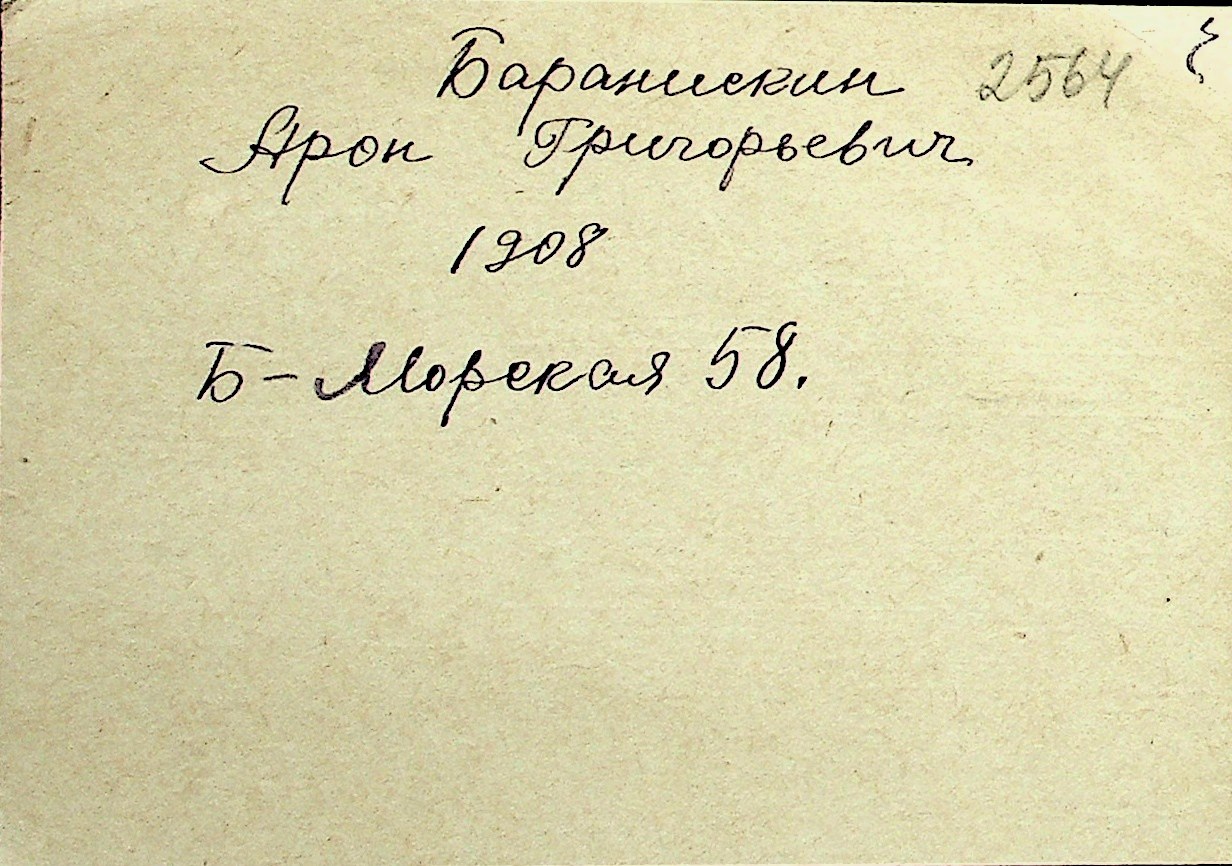 Баранискин 2564
Арон Григорьевич
1908
Б-Морская 58.